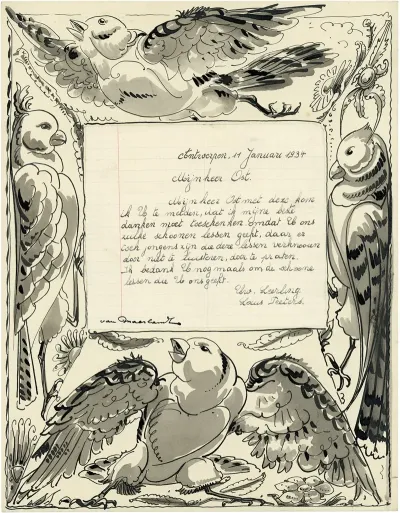 Antwerpen, 11 Januari 1934
Mijnheer Ost.
Mijnheer Ost met deze kom
ik U te melden, dat ik mijne beste
danken moet toeschenken omdat U ons
zulke schoonen lessen geeft, daar er
toch jongens zijn die deze lessen verknooien
door niet te luisteren, door te praten.
Ik bedank U nog maals om de schoone
lessen die U ons geeft.
Uw. Leerling
Louis
van